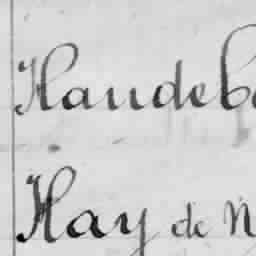 Haudeb
Hay de N